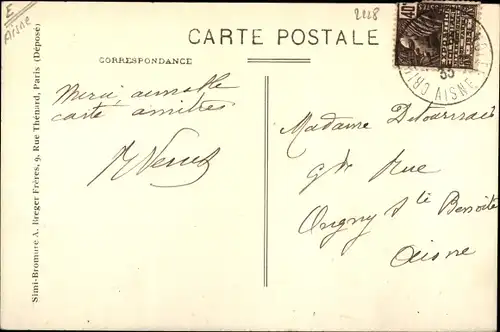 E
Aisne
2228
CARTE POSTALE
CORRESPONDANCE
Merci, aimable
carte amitiés
Madame
Gde Rue
Origny Ste Benoite
Aisne
40
35
AISNE
Simi-Bromure A. Breger Frères, 9, Rue Thénard, Paris (Déposé)